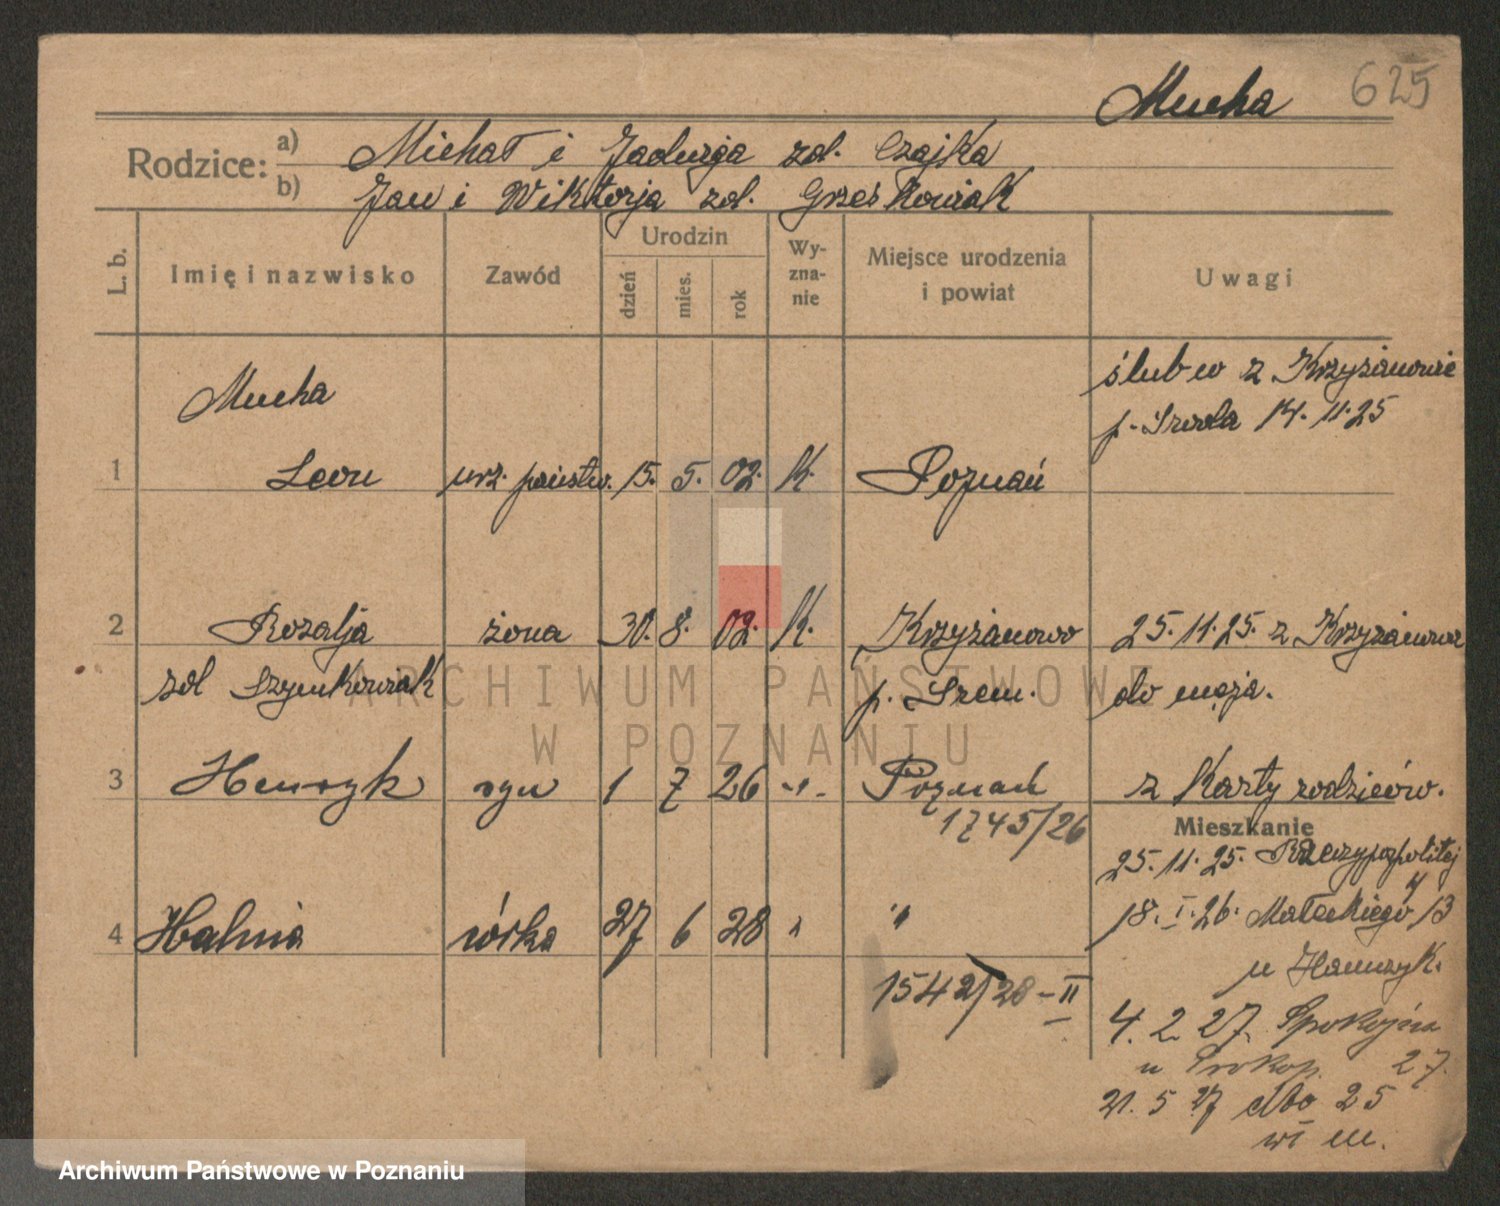 Mucha 625
Rodzice:
a) Michał i Jadwiga zd. Czajka
b) Jan i Wiktorja zd. Grześkowiak
L. b. Imię i nazwisko Zawód Urodzin dzień mies. rok Wyznanie Miejsce urodzenia i powiat Uwagi
ślub w z Krzyżanowie
Mucha
p. 14. 11. 25
1 Leon urz. państw. 15. 5. 02. K. Poznań
2 Rozalja żona 30. 8. 02. K. Krzyżanowo 25. 11. 25. z Krzyżanowa
zd Szymkowiak p. Śrem. do męża.
3 Henryk syn 1 7 26 -"- Poznań z Karty rodziców.
1745/26
Mieszkanie
25. 11. 25. Rzeczypospolitej 4
18. I. 26. Małeckiego 13
4 Halina córka 27 6 28 " "
u
1542/28-II
4. 2. 27. Spokojna
u Prokop. 27.
21. 5 27 dto 25
wł m.
ARCHIWUM PAŃSTWOWE
W POZNANIU
Archiwum Państwowe w Poznaniu